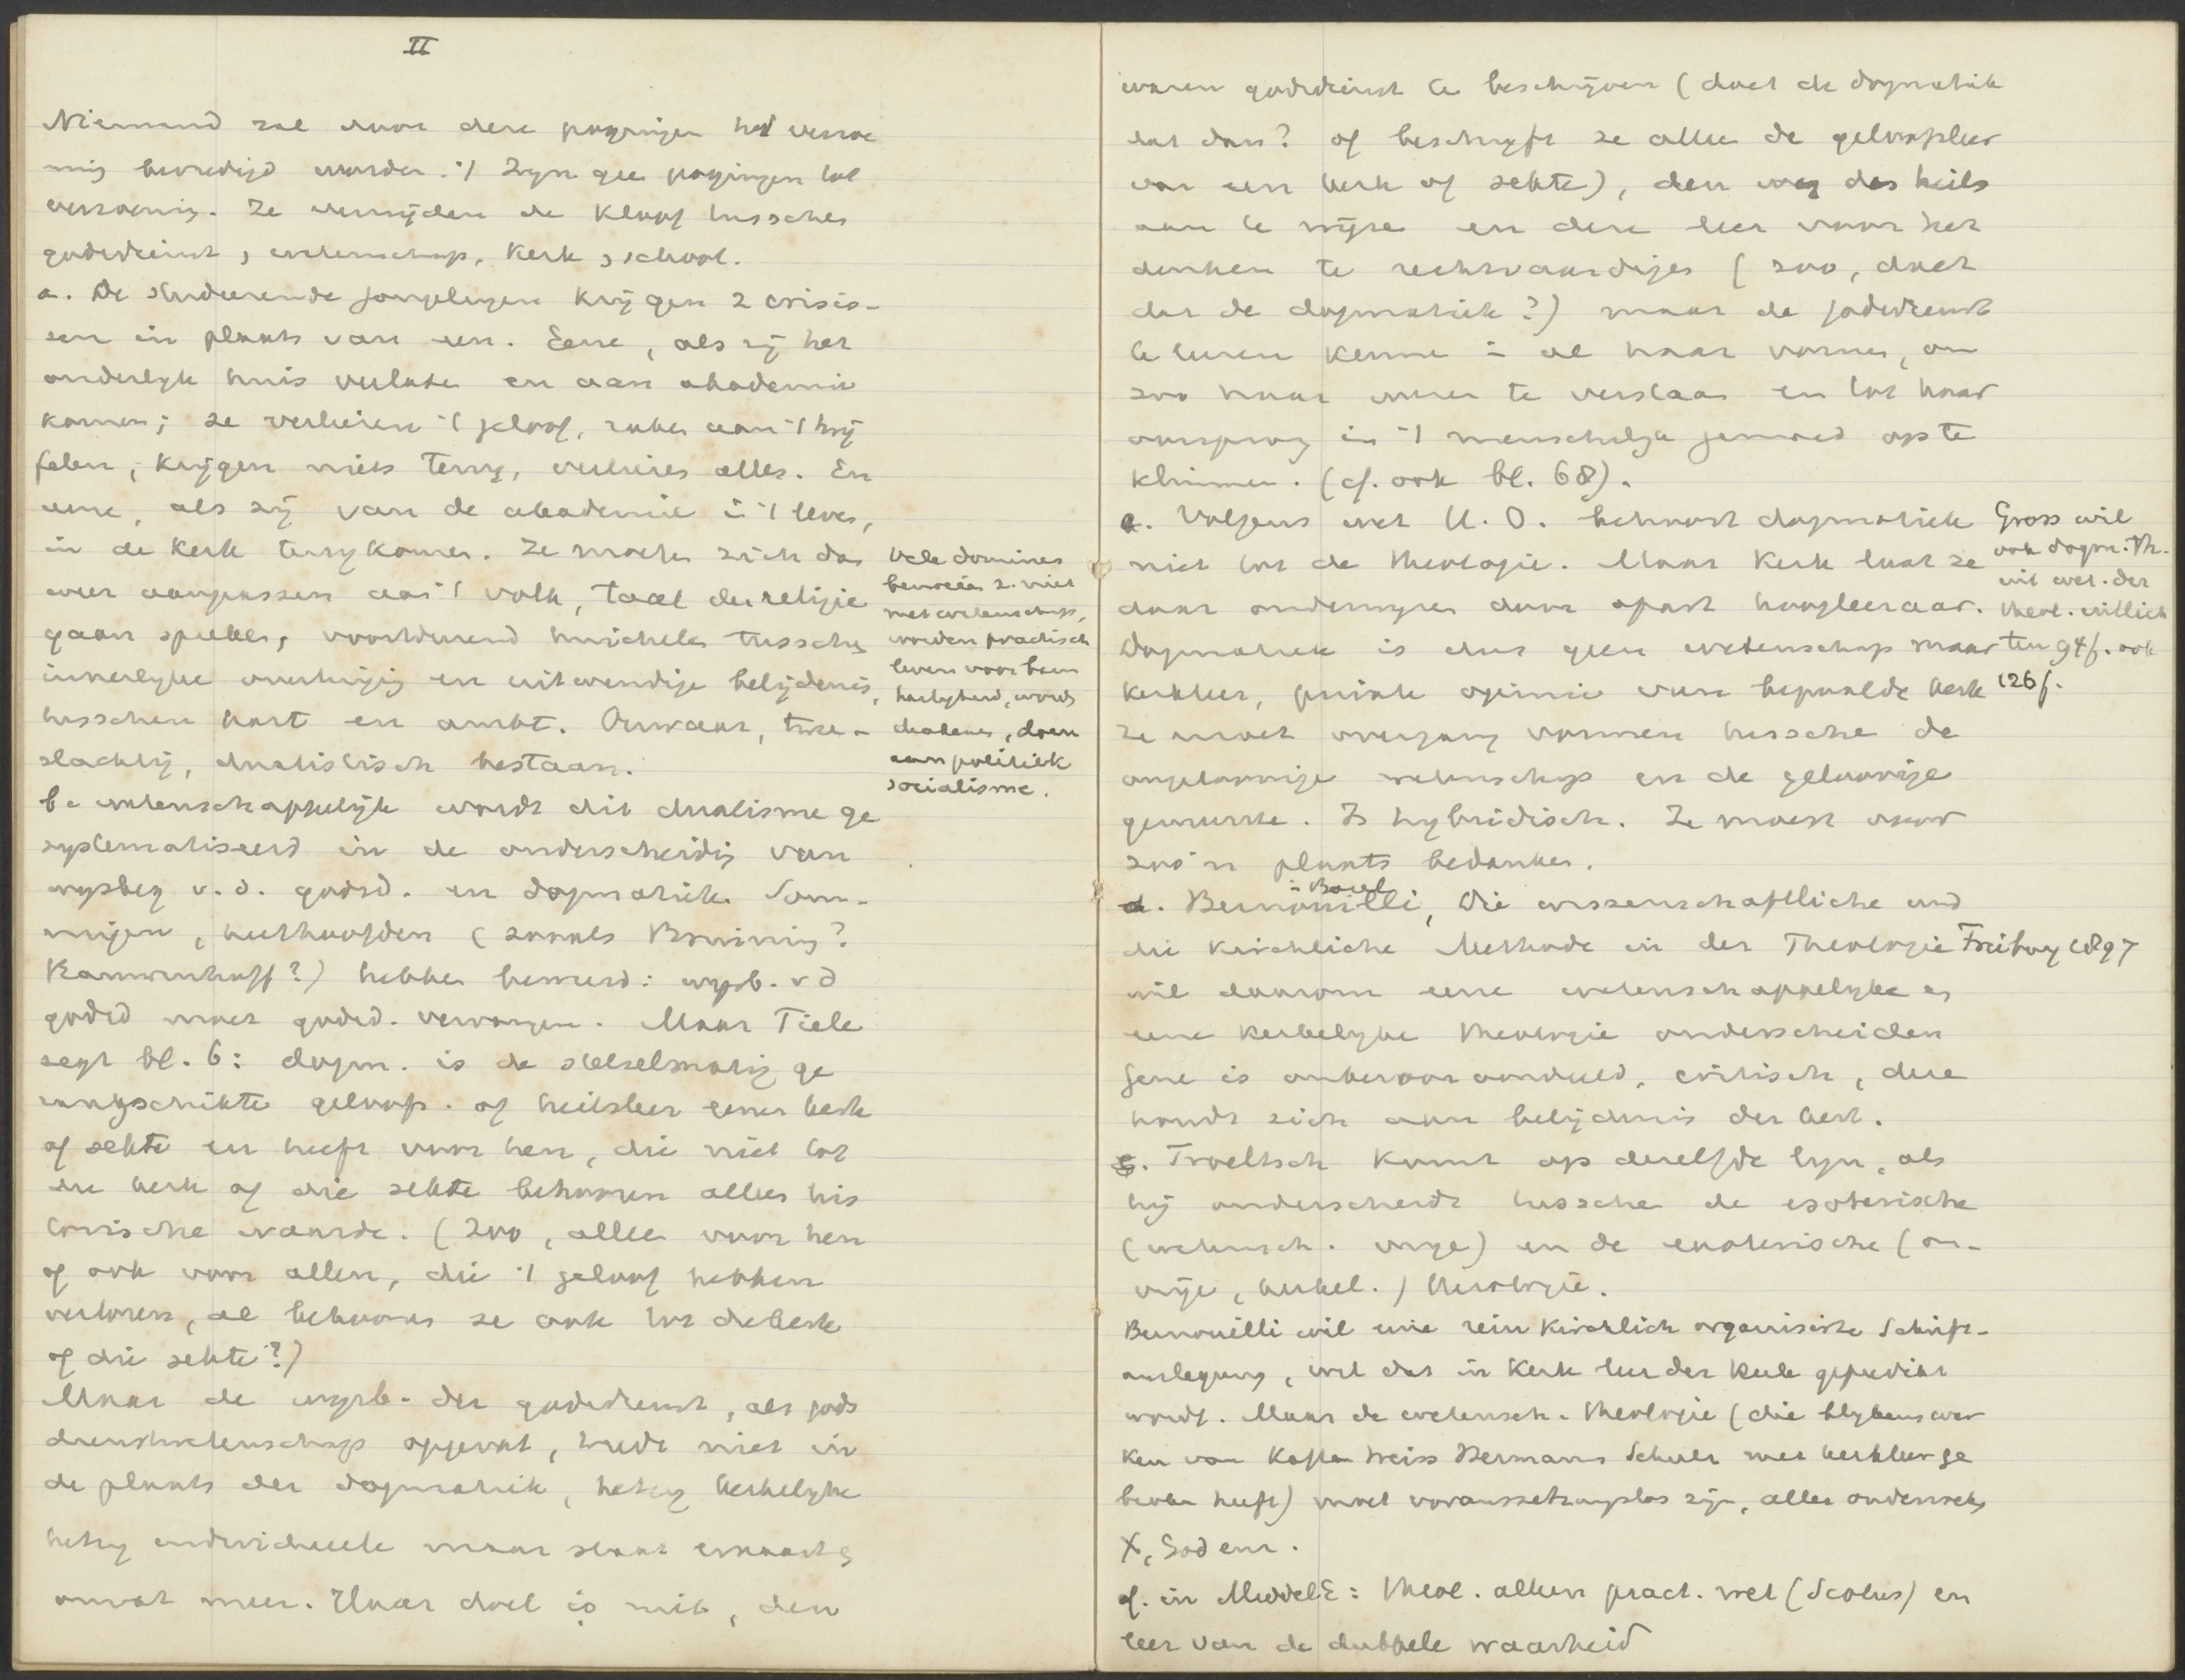 II
Niemand zal door deze pogingen tot verzoe
ning bevredigd worden. 't Zijn geen pogingen tot
verzoening. Ze vermijden de kloof tusschen
godsdienst, wetenschap, kerk, school.
a. De studeerende jongelingen krijgen 2 crisis-
sen in plaats van een. Eene, als zij het
ouderlijk huis verlaten en aan akademie
komen; ze verliezen 't geloof, raken aan 't twij
felen, krijgen niets terug, verliezen alles. En
eene, als zij van de akademie in 't leven,
in de kerk terugkomen. Ze moeten zich dan
weer aanpassen aan 't volk, taal der religie
gaan spreken, voortdurend huichelen tusschen
innerlijke overtuiging en uitwendige belijdenis,
tusschen hart en ambt. Onwaar, twee-
slachtig, dualistisch bestaan.
Vele dominees
bemoeien z. niet
met wetenschap,
worden practisch
leven voor barm
hartigheid, words
, doen
aan politiek
socialisme.
b. wetenschappelijk wordt dit dualisme ge
systematiseerd in de onderscheiding van
wijsbeg v. d. godsd. en dogmatiek. Som-
migen, heethoofden (zooals Bruining?
Rauwenhoff?) hebben beweerd: wijsb. v d
godsd moet godsd. vervangen. Maar Tiele
zegt bl. 6: dogm. is de stelselmatig ge
rangschikte geloofs. of heilsleer eener kerk
of sekte en heeft voor hen, die niet tot
die kerk of die sekte behooren alleen his
torische waarde. (Zoo, alleen voor hen
of ook voor allen, die 't geloof hebben
verloren, al behooren ze ook tot die kerk
of die sekte?)
Maar de wijsb. der godsdienst, als gods
dienstwetenschap opgevat, treedt niet in
de plaats der dogmatiek, hetzij kerkelijke
hetzij individueele maar staat ernaast &
omvat meer. Haar doel is niet, den
waren godsdienst te beschrijven (doet de dogmatiek
dat dan? of beschrijft ze alleen de geloofsleer
van een kerk of sekte), den weg des heils
aan te wijzen en deze leer voor het
denken te rechtvaardigen (zoo, doet
dat de dogmatiek?) maar de godsdienst
te leeren kennen in al haar vormen, om
zoo haar wezen te verstaan en tot haar
oorsprong in 't menschelijk gemoed op te
klimmen. (cf. ook bl. 68).
c. Volgens wet H. O. behoort dogmatiek
niet tot de theologie. Maar kerk laat ze
daar onderwijzen door apart hoogleeraar.
Dogmatiek is dus geen wetenschap maar
kerkleer, private opinie van bepaalde kerk
Ze moet overgang vormen tusschen de
ongeloovige wetenschap en de geloovige
gemeente. Is hybridisch. Ze moest voor
zoo'n plaats bedanken.
Gross wil
ook dogm. Th.
uit wet. der
theol. 
94f. ook
126f.
d. Bernouilli, in Basel Die wissenschaftliche und
die kirchliche Methode in der Theologie Freiburg 1897
wil daarom eene wetenschappelijke en
eene kerkelijke theologie onderscheiden
gene is onbevooroordeeld, critisch, deze
houdt zich aan belijdenis der kerk.
e. Troeltsch komt op dezelfde lijn, als
hij onderscheidt tusschen de esoterische
(wetensch. vrije) en de exoterische (on-
vrije, kerkel.) theologie.
Bernouilli wil eene rein kirchlich organisirte Schrift-
auslegung, wil dat in kerk leer der kerk gepredikt
wordt. Maar de wetensch. theologie (die blijkens wer
ken van Kaftan Weiss Hermann Schulz weer kerkleer ge
broken heeft) moet voraussetzungslos zijn, alles onderzoeken,
X, God enz.
cf. in MiddelE: theol. alleen pract. wet (Scotus) en
leer van de dubbele waarheid